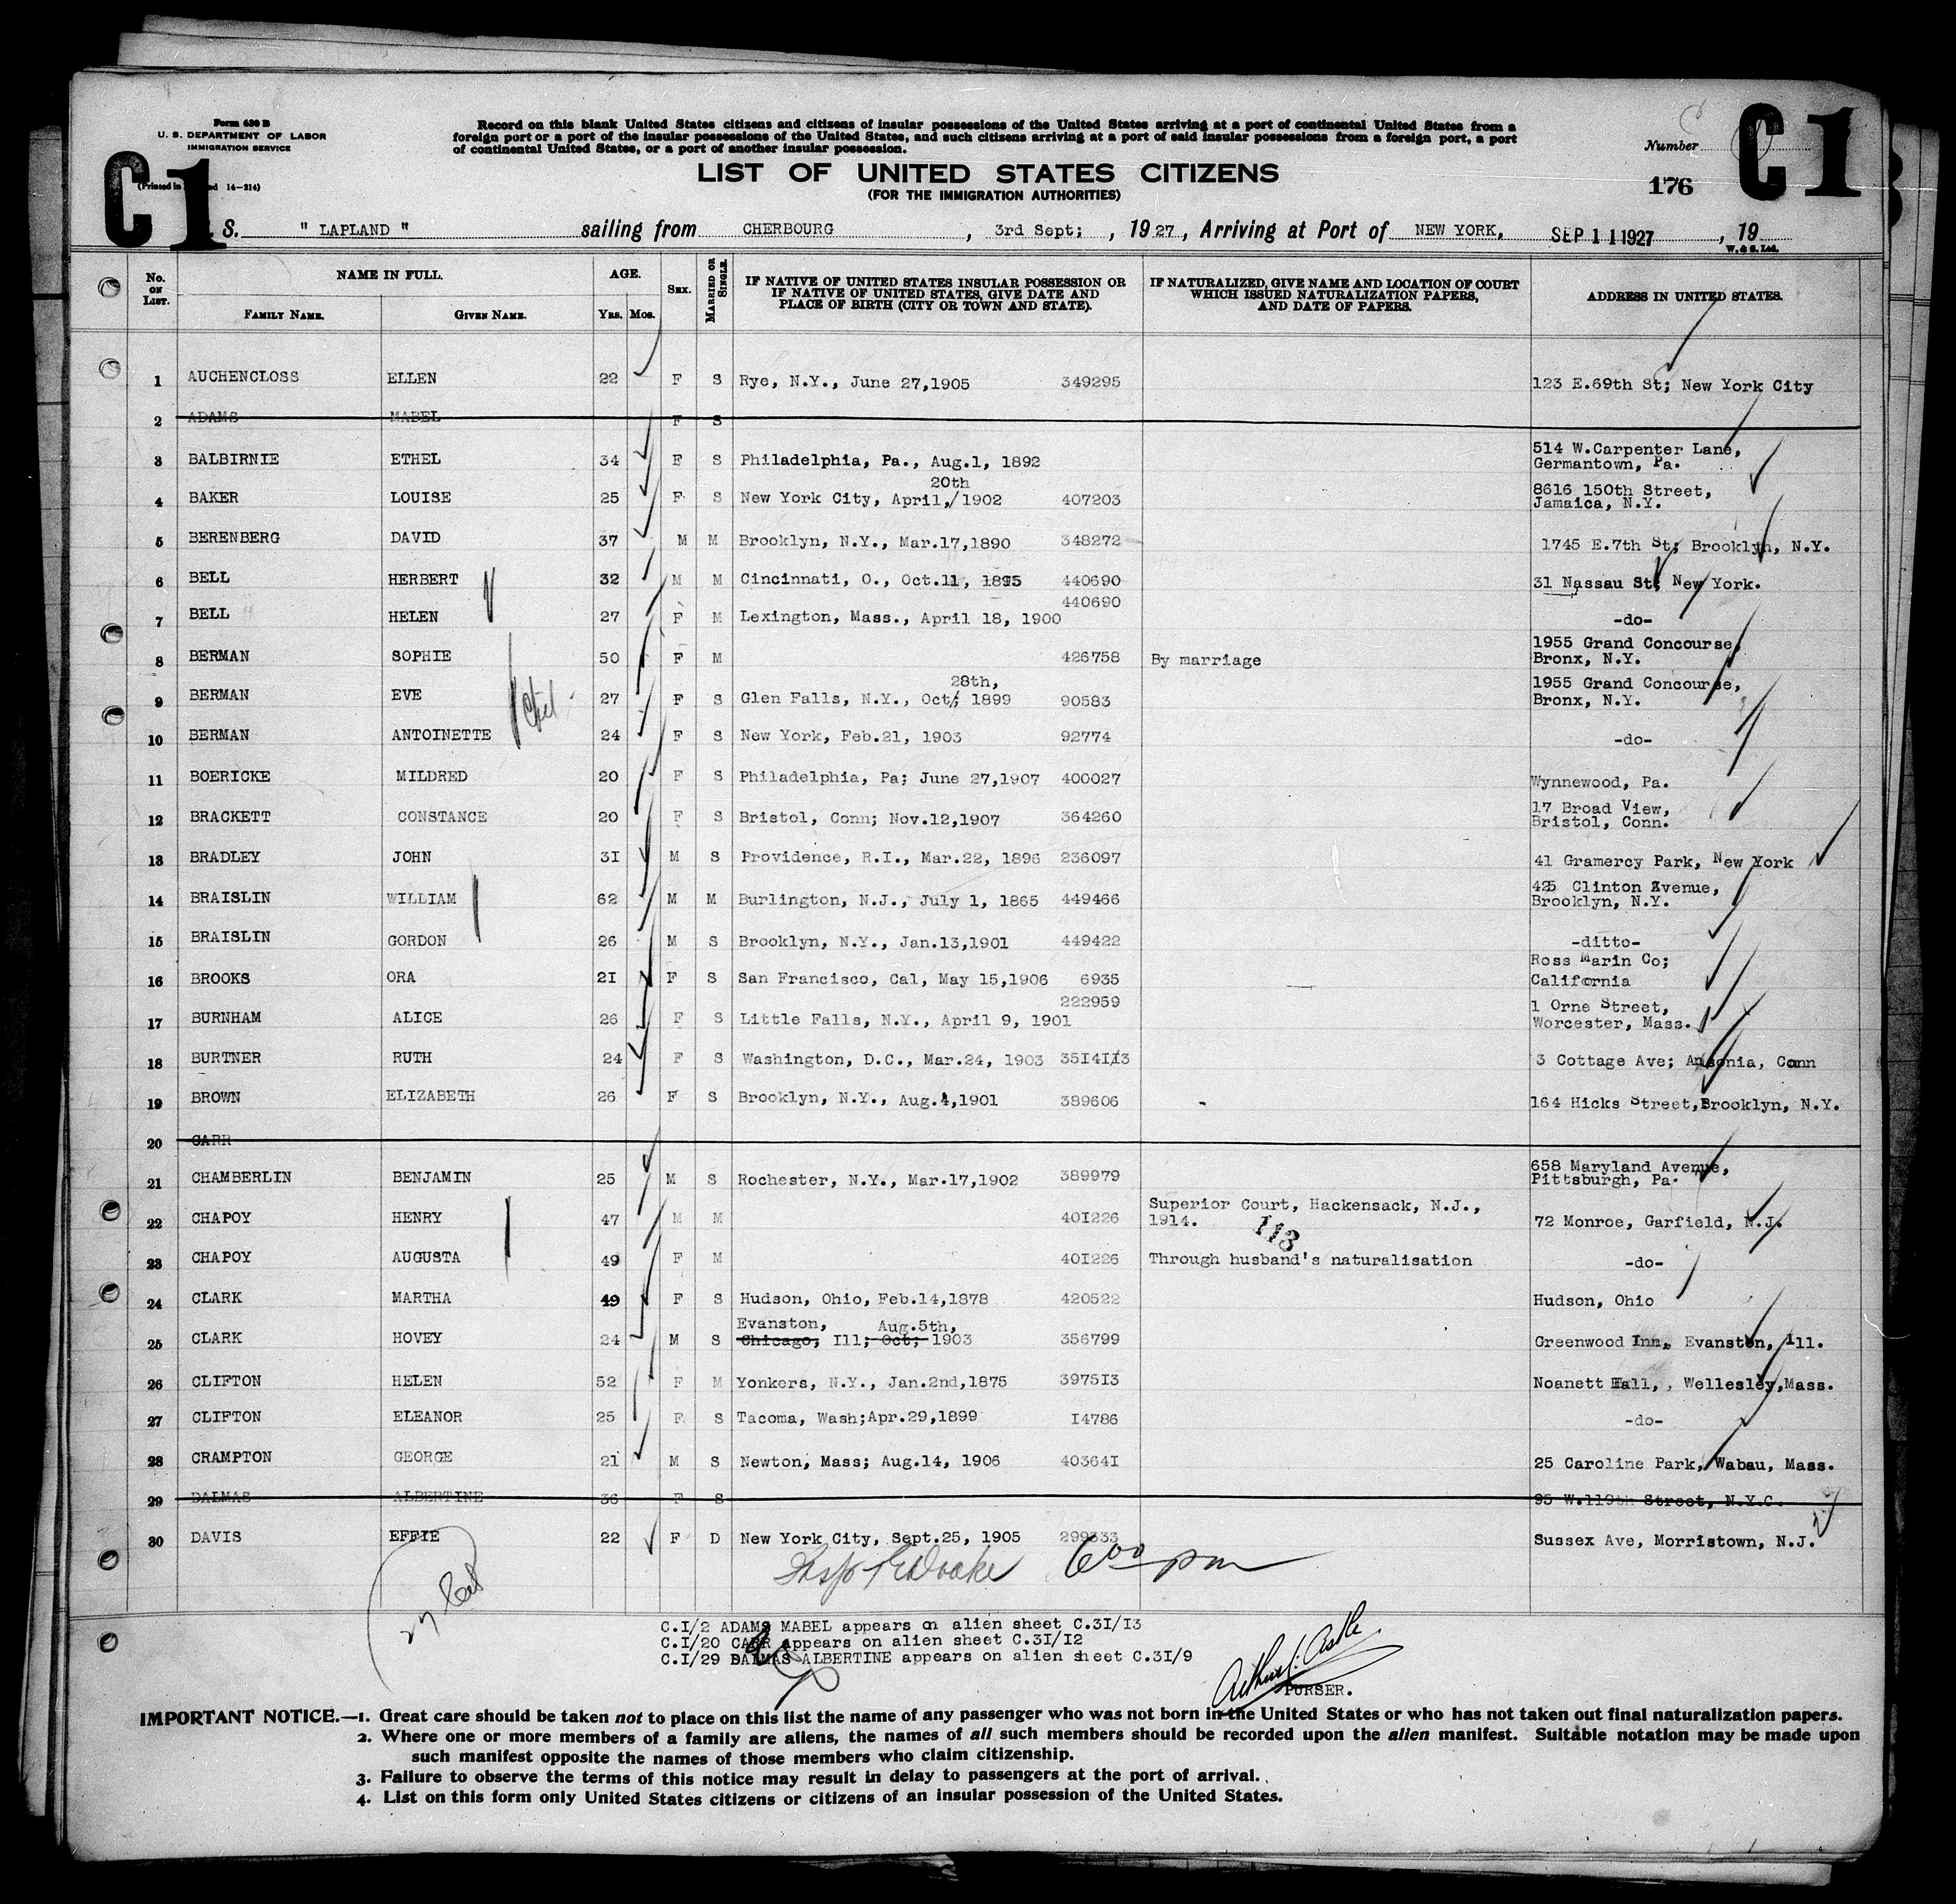 Form 630 B
U. S. DEPARTMENT OF LABOR
IMMIGRATION SERVICE
C1
(Printed in 14-214)
Record on this blank United States citizens and citizens of insular possessions of the United States arriving at a port of continental United States from a
foreign port or a port of the insular possessions of the United States, and such citizens arriving at a port of said insular possessions from a foreign port, a port
of continental United States, or a port of another insular possession.
LIST OF UNITED STATES CITIZENS
(FOR THE IMMIGRATION AUTHORITIES)
Number
C1
176
S. " LAPLAND " sailing from CHERBOURG , 3rd Sept; , 1927, Arriving at Port of NEW YORK, SEP 11 1927 , 19
W. & S. Ltd.
No. ON LIST. NAME IN FULL. AGE. SEX. MARRIED OR SINGLE. IF NATIVE OF UNITED STATES INSULAR POSSESSION OR IF NATIVE OF UNITED STATES, GIVE DATE AND PLACE OF BIRTH (CITY OR TOWN AND STATE). IF NATURALIZED, GIVE NAME AND LOCATION OF COURT WHICH ISSUED NATURALIZATION PAPERS, AND DATE OF PAPERS. ADDRESS IN UNITED STATES.
FAMILY NAME. GIVEN NAME. YRS. MOS.
1 AUCHENCLOSS ELLEN 22 F S Rye, N.Y., June 27,1905 349295 123 E.69th St; New York City
2 ADAMS MABEL F S
3 BALBIRNIE ETHEL 34 F S Philadelphia, Pa., Aug.1, 1892 514 W.Carpenter Lane, Germantown, Pa.
20th
4 BAKER LOUISE 25 F S New York City, April,/1902 407203 8616 150th Street, Jamaica, N.Y.
5 BERENBERG DAVID 37 M M Brooklyn, N.Y., Mar.17,1890 348272 1745 E.7th St; Brooklyn, N.Y.
6 BELL HERBERT 32 M M Cincinnati, O., Oct.11, 1895 440690 31 Nassau St; New York.
7 BELL HELEN 27 F M Lexington, Mass., April 18, 1900 440690 -do-
8 BERMAN SOPHIE 50 F M 426758 By marriage 1955 Grand Concourse, Bronx, N.Y.
28th,
9 BERMAN EVE 27 F S Glen Falls, N.Y., Oct; 1899 90583 1955 Grand Concourse, Bronx, N.Y.
10 BERMAN ANTOINETTE 24 F S New York, Feb.21, 1903 92774 -do-
11 BOERICKE MILDRED 20 F S Philadelphia, Pa; June 27,1907 400027 Wynnewood, Pa.
12 BRACKETT CONSTANCE 20 F S Bristol, Conn; Nov.12,1907 364260 17 Broad View, Bristol, Conn.
13 BRADLEY JOHN 3I M S Providence, R.I., Mar.22, 1896 236097 41 Gramercy Park, New York
14 BRAISLIN WILLIAM 62 M M Burlington, N.J., July 1, 1865 449466 425 Clinton Avenue, Brooklyn, N.Y.
15 BRAISLIN GORDON 26 M S Brooklyn, N.Y., Jan.13,1901 449422 -ditto-
16 BROOKS ORA 2I F S San Francisco, Cal, May 15,1906 6935 Ross Marin Co; California
17 BURNHAM ALICE 26 F S Little Falls, N.Y., April 9, 1901 222959 1 Orne Street, Worcester, Mass.
18 BURTNER RUTH 24 F S Washington, D.C., Mar.24, 1903 35I4I13 3 Cottage Ave; Ansonia, Conn
19 BROWN ELIZABETH 26 F S Brooklyn, N.Y., Aug.4,1901 389606 164 Hicks Street,Brooklyn, N.Y.
20 CARR
21 CHAMBERLIN BENJAMIN 25 M S Rochester, N.Y., Mar.17,1902 389979 658 Maryland Avenue, Pittsburgh, Pa.
22 CHAPOY HENRY 47 M M 40I226 Superior Court, Hackensack, N.J., 1914. 72 Monroe, Garfield, N.J.
113
23 CHAPOY AUGUSTA 49 F M 40I226 Through husband's naturalisation -do-
24 CLARK MARTHA 49 F S Hudson, Ohio, Feb.14,1878 420522 Hudson, Ohio
Evanston, Aug.5th,
25 CLARK HOVEY 24 M S Chicago, Ill; Oct; 1903 356799 Greenwood Inn, Evanston, Ill.
26 CLIFTON HELEN 52 F M Yonkers, N.Y., Jan.2nd,1875 3975I3 Noanett Hall, , Wellesley,Mass.
27 CLIFTON ELEANOR 25 F S Tacoma, Wash;Apr.29,1899 I4786 -do-
28 CRAMPTON GEORGE 21 M S Newton, Mass; Aug.14, 1906 40364I 25 Caroline Park, Wabau, Mass.
29 DALMAS ALBERTINE 36 F S 95 W.119th Street, N.Y.C.
30 DAVIS EFFIE 22 F D New York City, Sept.25, 1905 299333 Sussex Ave, Morristown, N.J.
6 00 pm
C.I/2 ADAMS MABEL appears on alien sheet C.3I/I3
C.I/20 CARR appears on alien sheet C.3I/I2
C.I/29 DALMAS ALBERTINE appears on alien sheet C.3I/9
PURSER.
IMPORTANT NOTICE.—1. Great care should be taken not to place on this list the name of any passenger who was not born in the United States or who has not taken out final naturalization papers.
2. Where one or more members of a family are aliens, the names of all such members should be recorded upon the alien manifest. Suitable notation may be made upon
such manifest opposite the names of those members who claim citizenship.
3. Failure to observe the terms of this notice may result in delay to passengers at the port of arrival.
4. List on this form only United States citizens or citizens of an insular possession of the United States.